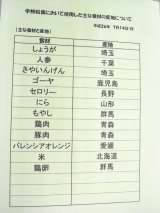 学校給食において使用した主な食材の産地について
平成24年 7月14日(月)
【主な食材と産地】
食材 産地
しょうが 埼玉
人参 千葉
さやいんげん 埼玉
ゴーヤ 鹿児島
セロリー 長野
にら 山形
もやし 群馬
鶏肉 青森
豚肉 青森
バレンシアオレンジ 愛媛
米 北海道
鶏卵 群馬